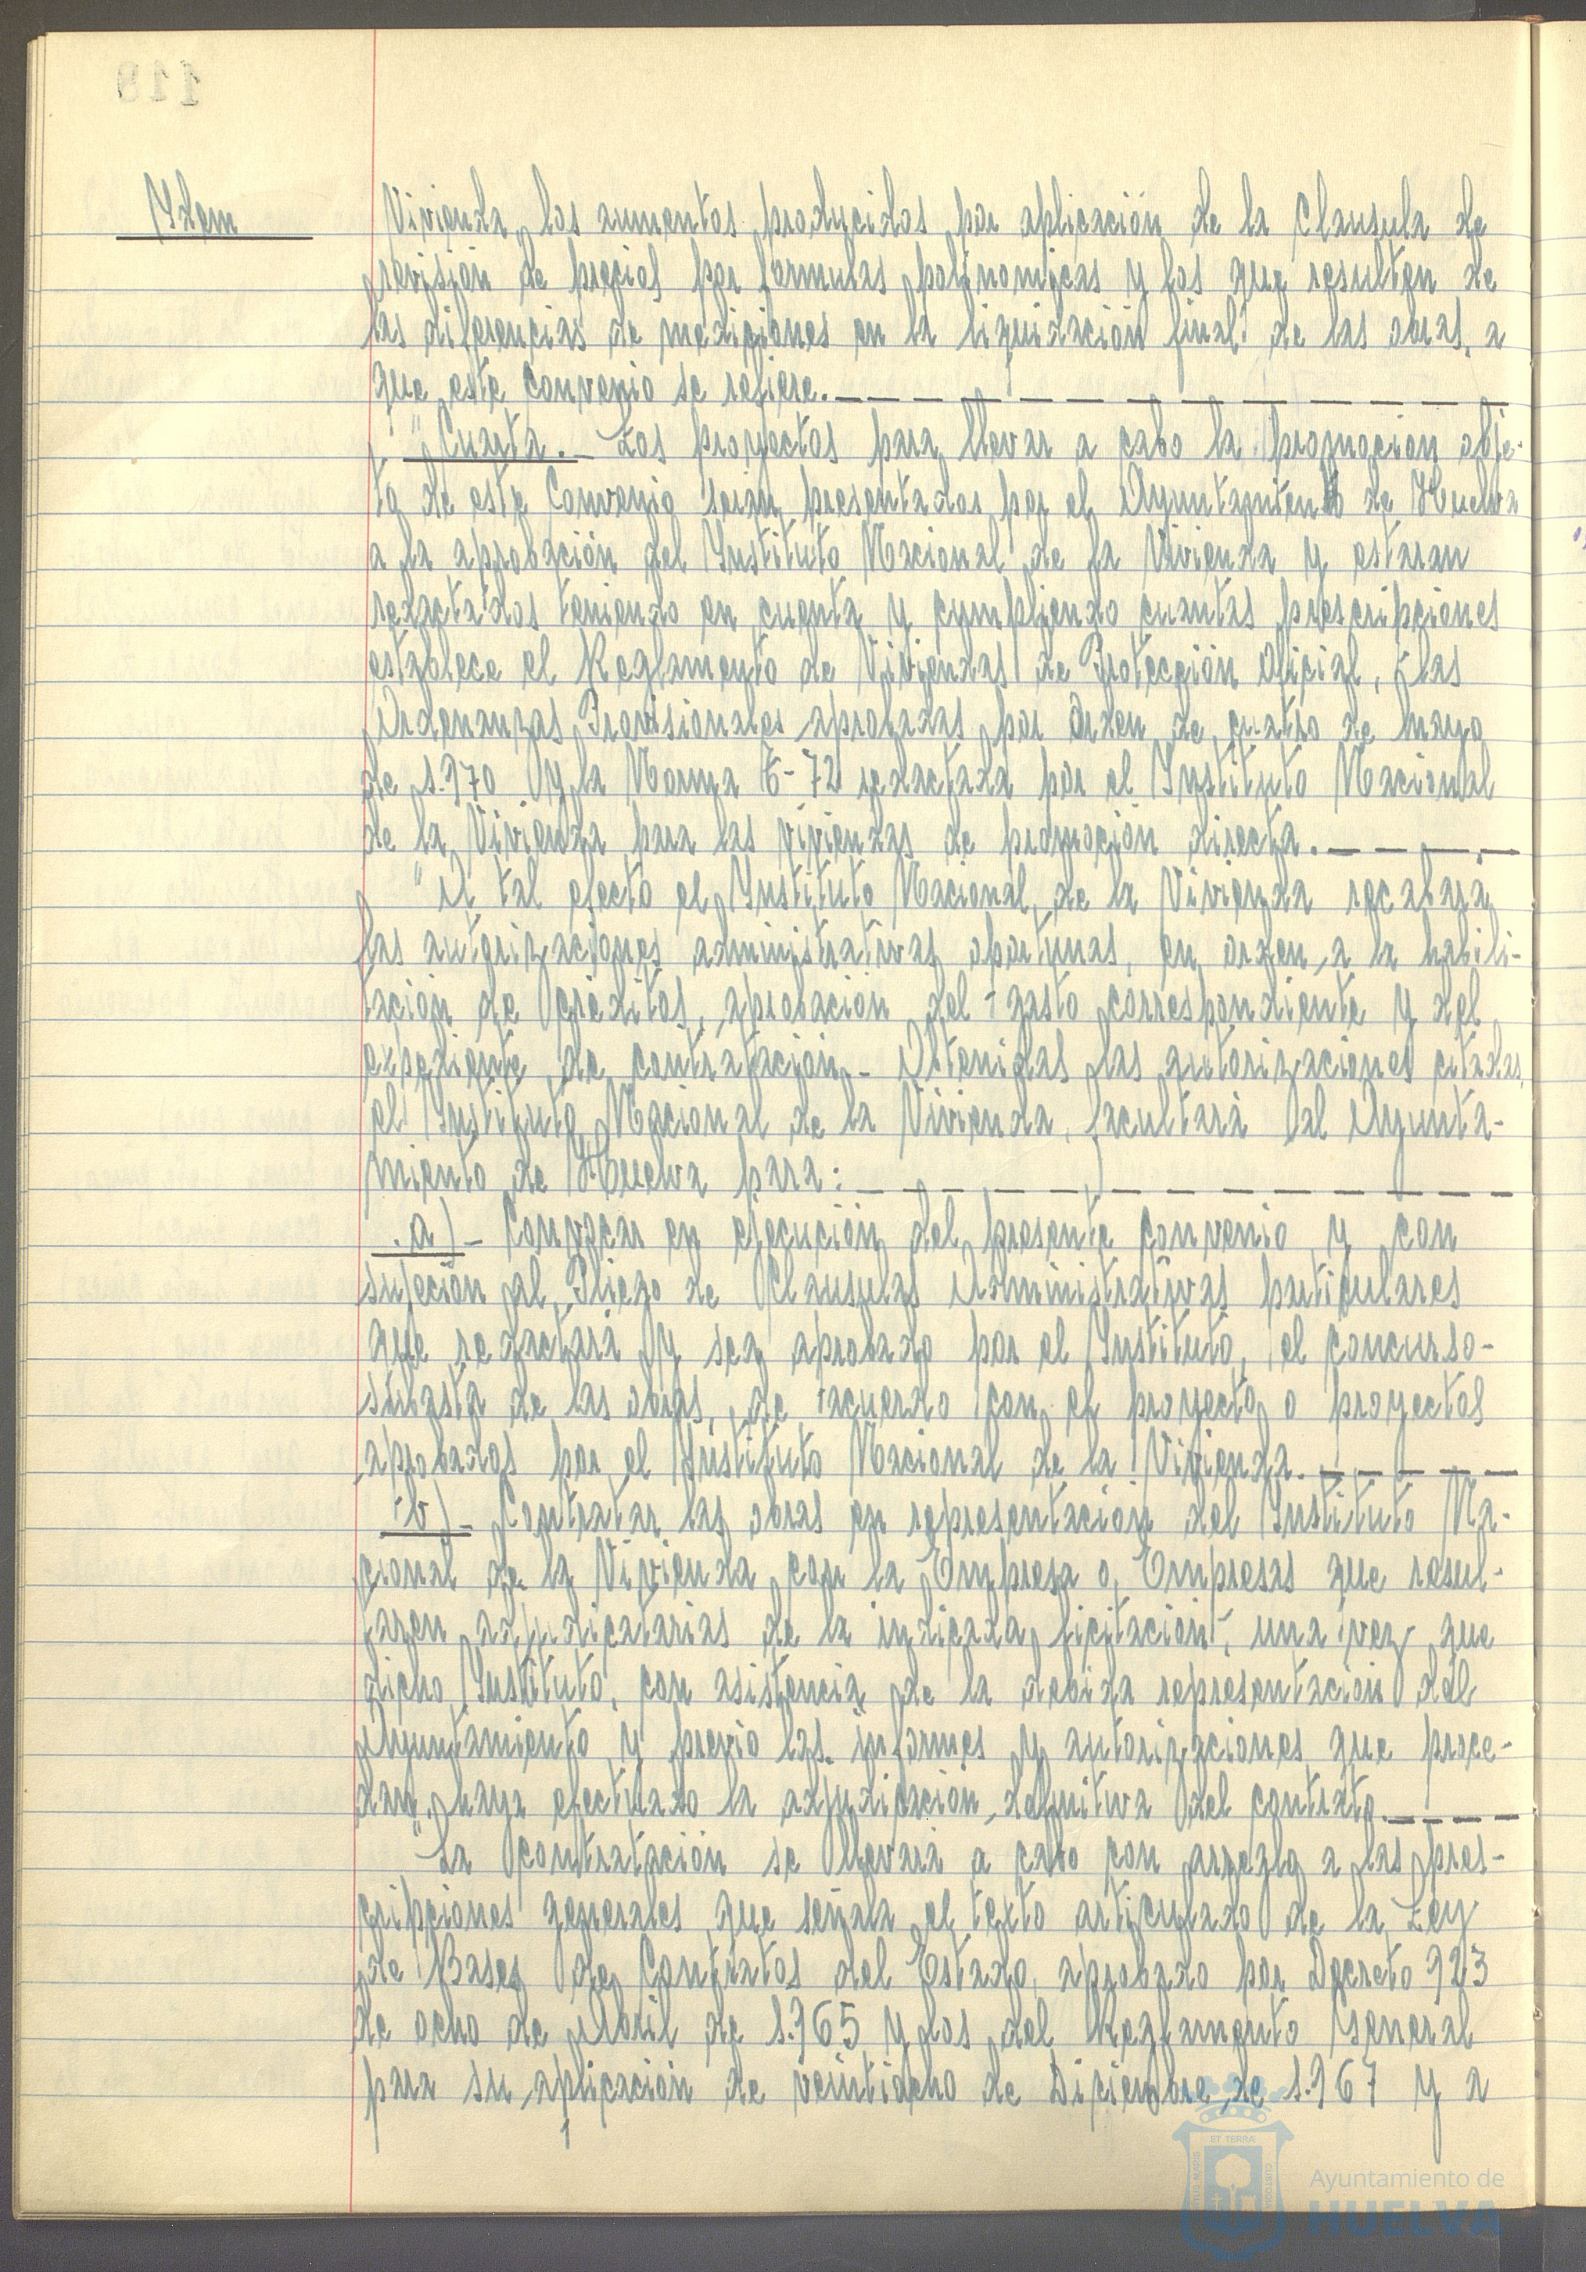 Ydem
Vivienda, los aumentos producidos por aplicación de la Clausula de
revisión de precios por formulas polinomicas y los que resulten de
las diferencias de mediciones en la liquidación final de las obras, a
que este Convenio se refiere.
"Cuarta.- Los proyectos para llevar a cabo la promoción obje-
to de este Convenio serán presentados por el Ayuntamiento de Huelva
a la aprobación del Instituto Nacional de la Vivienda y estaran
redactados teniendo en cuenta y cumpliendo cuantas prescripciones
establece el Reglamento de Viviendas de Protección Oficial, las
Ordenanzas Provisionales aprobadas por Orden de cuatro de mayo
de 1.970 y la Norma E-72 redactada por el Instituto Nacional
de la Vivienda para las viviendas de promoción directa.
"A tal efecto el Instituto Nacional de la Vivienda recabará
las autorizaciones administrativas oportunas, en orden a la habili-
tación de créditos, aprobación del gasto correspondiente y del
expediente de contratación.- Obtenidas las autorizaciones citadas,
el Instituto Nacional de la Vivienda, facultará al Ayunta-
miento de Huelva para:
a)- Convocar en ejecución del presente Convenio y con
sujeción al Pliego de Clausulas Administrativas particulares
que redactará y sea aprobado por el Instituto, el concurso-
subasta de las obras, de acuerdo con el proyecto o proyectos
aprobados por el Instituto Nacional de la Vivienda.
b)- Contratar las obras en representación del Instituto Na-
cional de la Vivienda con la Empresa o Empresas que resul-
taren adjudicatarias de la indicada licitación, una vez que
dicho Instituto, con asistencia de la debida representación del
Ayuntamiento y previo las informes y autorizaciones que proce-
dan, haya efectuado la adjudicación definitiva del contrato.
"La contratación se llevará a cabo con arreglo a las pres-
cripciones generales que señala el texto articulado de la Ley
de Bases de Contratos del Estado, aprobado por Decreto 923
de ocho de Abril de 1.965 y los del Reglamento General
para su aplicación de veintiocho de Diciembre de 1.967 y a
Ayuntamiento de
HUELVA